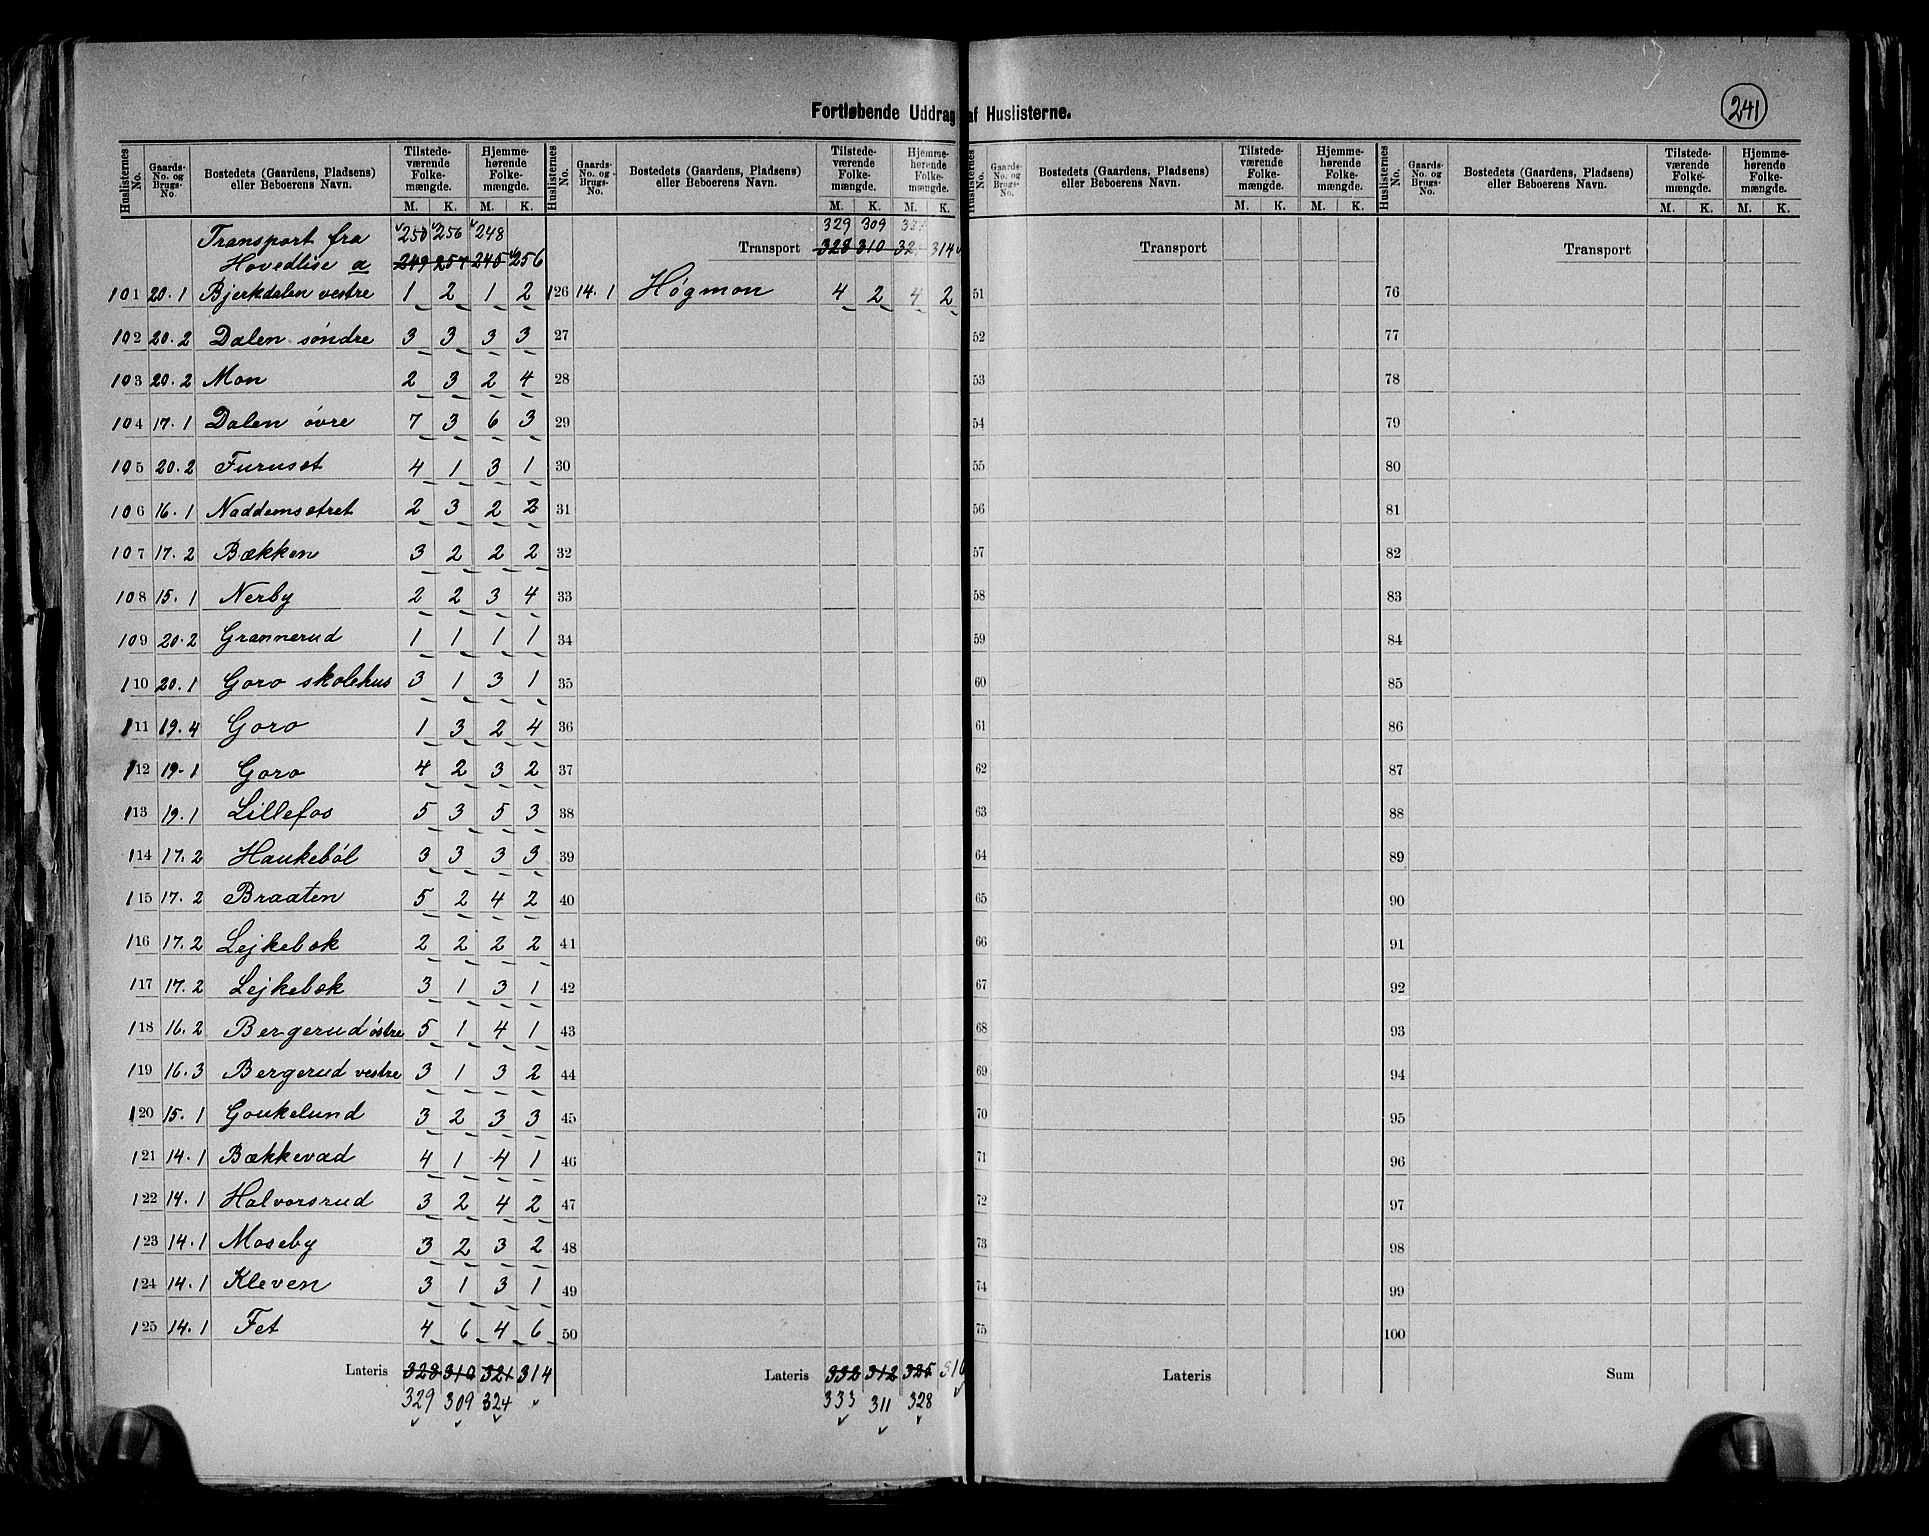 241
Fortløbende Uddrag af Huslisterne.
Huslisternes No. Gaards-No. og Brugs-No. Bostedets (Gaardens, Pladsens) eller Beboerens Navn. Tilstedeværende Folkemængde. M. K. Hjemmehørende Folkemængde. M. K.
Transport fra 250 256 248
Hovedlise a 249 257 245 256
101 20.1 Bjerkdalen vestre 1 2 1 2
102 20.2 Dalen søndre 3 3 3 3
103 20.2 Mon 2 3 2 4
104 17.1 Dalen øvre 7 3 6 3
105 20.2 Furusæt 4 1 3 1
106 16.1 Naddemsætret 2 3 2 2
107 17.2 Bækken 3 2 2 2
108 15.1 Nerby 2 2 3 4
109 20.2 Grannerud 1 1 1 1
110 20.1 Goro skolehus 3 1 3 1
111 19.4 Goro 1 3 2 4
112 19.1 Goro 4 2 3 2
113 19.1 Lillefos 5 3 5 3
114 17.2 Haukebøl 3 3 3 3
115 17.2 Braaten 5 2 4 2
116 17.2 Lejkebæk 2 2 2 2
117 17.2 Lejkebæk 3 1 3 1
118 16.2 Bergerud østre 5 1 4 1
119 16.3 Bergerud vestre 3 1 3 2
120 15.1 Goukelund 3 2 3 3
121 14.1 Bækkevad 4 1 4 1
122 14.1 Halvorsrud 3 2 4 2
123 14.1 Moseby 3 2 3 2
124 14.1 Kleven 3 1 3 1
125 14.1 Fet 4 6 4 6
Lateris 328 310 321 314
329 309 324
Huslisternes No. Gaards-No. og Brugs-No. Bostedets (Gaardens, Pladsens) eller Beboerens Navn. Tilstedeværende Folkemængde. M. K. Hjemmehørende Folkemængde. M. K.
329 309
Transport 328 310 314
126 14.1 Høgmon 4 2 4 2
27
28
29
30
31
32
33
34
35
36
37
38
39
40
41
42
43
44
45
46
47
48
49
50
Lateris 332 312 325
333 311 328
Huslisternes No. Gaards-No. og Brugs-No. Bostedets (Gaardens, Pladsens) eller Beboerens Navn. Tilstedeværende Folkemængde. M. K. Hjemmehørende Folkemængde. M. K.
Transport
51
52
53
54
55
56
57
58
59
60
61
62
63
64
65
66
67
68
69
70
71
72
73
74
75
Lateris
Huslisternes No. Gaards-No. og Brugs-No. Bostedets (Gaardens, Pladsens) eller Beboerens Navn. Tilstedeværende Folkemængde. M. K. Hjemmehørende Folkemængde. M. K.
Transport
76
77
78
79
80
81
82
83
84
85
86
87
88
89
90
91
92
93
94
95
96
97
98
99
100
Sum